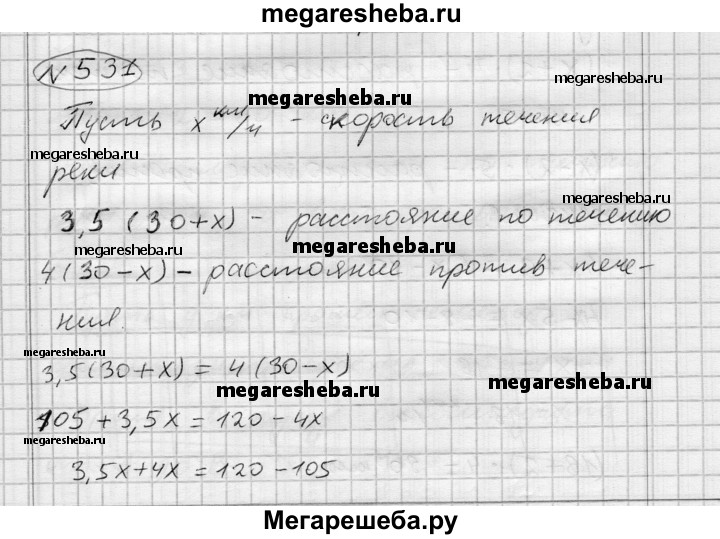 megaresheba.ru
N 531
megaresheba.ru
megaresheba.ru
Пусть x км/ч - скорость течения
megaresheba.ru
реки
megaresheba.ru
3,5 (30+x) - расстояние по течению
megaresheba.ru
megaresheba.ru
4(30-x) - расстояние против тече-
ния.
megaresheba.ru
3,5(30+x) = 4(30-x)
megaresheba.ru
megaresheba.ru
105 + 3,5x = 120 - 4x
megaresheba.ru
3,5x+4x = 120-105
Мегарешеба.ру